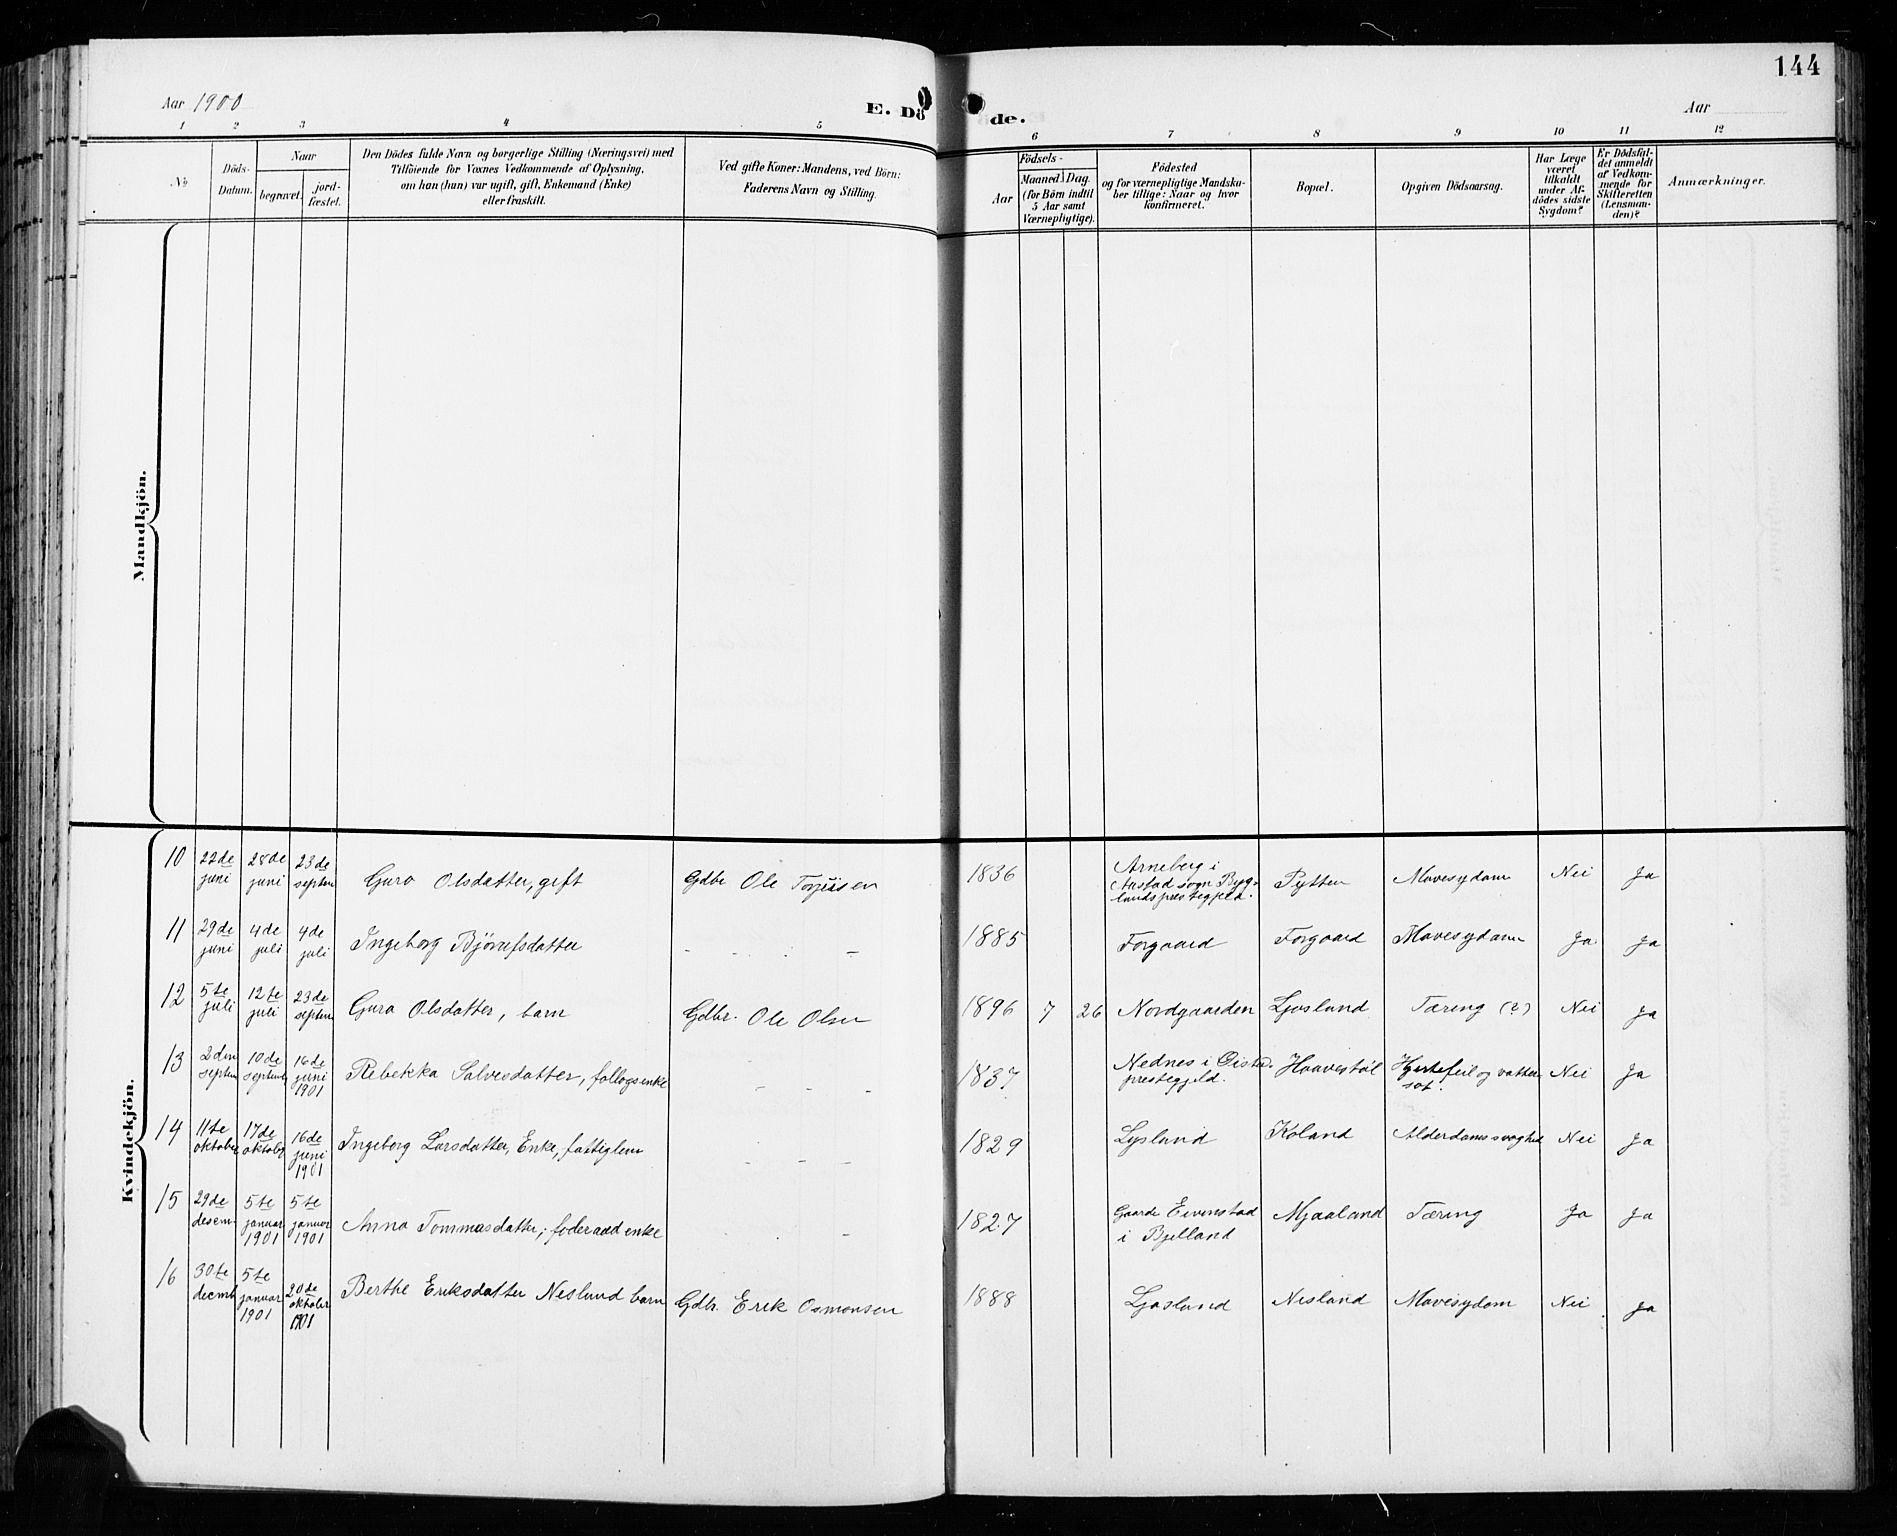 144
Aar 1900
E. Dö de.
Aar
1 2 3 4 5 6 7 8 9 10 11 12
No
Döds-
Datum.
Naar
begravet.
jord-
fæstet.
Den Dödes fulde Navn og borgerlige Stilling (Næringsvei) med
Tilföiende for Voxnes Vedkommende af Oplysning,
om han (hun) var ugift, gift, Enkemand (Enke)
eller fraskilt.
Ved gifte Koner: Mandens, ved Börn:
Faderens Navn og Stilling.
Födsels-
Aar
Maaned. Dag.
(for Börn indtil
5 Aar samt
Værnepligtige).
Födested
og for værnepligtige Mandsku-
ber tillige: Naar og hvor
konfirmeret.
Bopæl.
Opgiven Dödsaarsag.
Har Læge
været
tilkaldt
under Af-
dödes sidste
Sygdom?
Er Dödsfal-
det anmeldt
af Vedkom-
mende for
Skifteretten
(Lensman-
den)?
Anmærkninger.
Mandkjön.
Kvindekjön.
10 22de juni 28de juni 23de septem Guro Olsdatter, gift Gdbr Ole Torjusen 1836 Arneberg i Aastad sogn Byg-
landsprestegjeld. Pytten Mavesydom Nei Ja
11 29de juni 4de juli 4de juli Ingeborg Bjørufsdatter - - - - 1885 Forgaard Forgaard Mavesydom Ja Ja
12 5te juli 12te juli 23de septem Guro Olsdatter, barn Gdbr. Ole Olsen 1896 7 26 Nordgaarden Ljosland Tæring (?) Nei Ja
13 2den septem 10de septemb 16de juni 1901 Rebekka Salvesdatter, follogsenke - - - 1837 Nednes i Øista.
prestegjeld. Haavestøl Hjertefeil og vatter-
sot. Nei Ja
14 11te oktober 17de oktobr 16de juni 1901 Ingeborg Larsdatter, Enke, fattiglem - - - 1829 Lysland Koland Alderdomssvaghed Nei Ja
15 29de desem- 5te januar 1901 5te januar 1901 Anna Tommasdatter, foderaad enke - - 1827 Gaarde Eivenstad
i Bjelland Mjaaland Tæring Ja Ja
16 30te decmb 5te januar 1901 20de oktober 1901 Berthe Eriksdatter Nesland barn Gdbr. Erik Osmonsen 1888 Ljosland Nesland Mavesydom Nei Ja